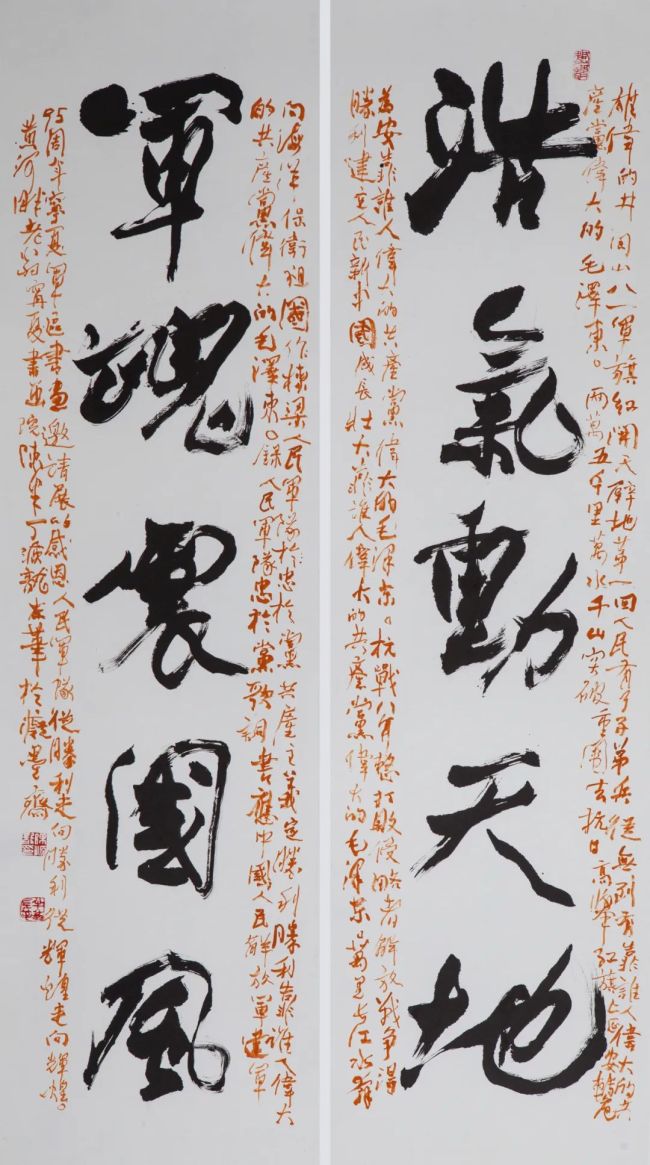 雄偉的井岡山八一軍旗紅開天辟地第一回人民有了子弟兵從無到有靠誰人偉大的共
產黨偉大的毛澤東。兩萬五千里萬水千山突破重圍去抗日高舉紅旗上延安轉危
浩氣動天地
為安靠誰人偉大的共產黨偉大的毛泽东。抗戰八年整打敗侵略者解放戰争得
勝利建立人民新中國成長壯大靠誰人偉大的共產黨偉大的毛泽东山萬里长江水奔
向海洋保衛祖國作棟梁人民軍隊忠於黨共產主義定勝利勝利靠誰人偉大
的共產黨偉大的毛澤東。錄人民軍隊忠於黨歌詞書應中國人民解放軍建軍
軍魂震國風
95周年寧夏軍區書畫邀請展以感恩人民軍隊從勝利走向勝利從輝煌走向輝煌。
黃河畔老翁寧夏書画院於癡墨齋